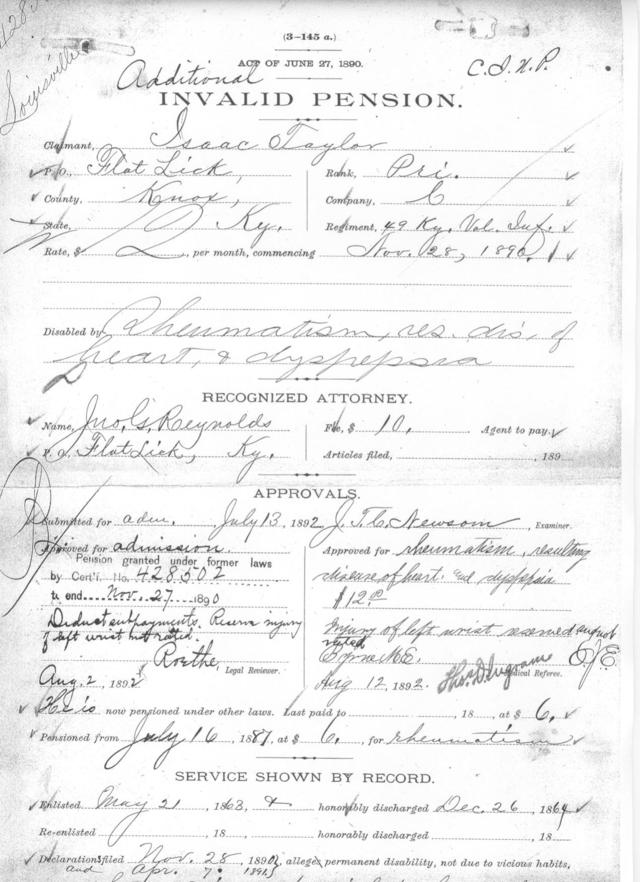 Louisville
(3—145 a.)
ACT OF JUNE 27, 1890.
Additional C. I. N. P.
INVALID PENSION.
Claimant, Isaac Taylor
P. O., Flat Lick, Rank, Pri.
County, Knox, Company, C
State, Ky. Regiment, 49 Ky. Vol. Inf.
Rate, $ 12 , per month, commencing Nov. 28, 1890.
Disabled by Rheumatism, res. dis. of
heart, & dyspepsia
RECOGNIZED ATTORNEY.
Name, Jno. G. Reynolds Fee, $ 10. Agent to pay.
P. O. Flat Lick, Ky. Articles filed, , 189
APPROVALS.
Submitted for adm. July 13, 1892 J. T. C. Newsom, Examiner.
Approved for admission. Approved for rheumatism, resulting
Pension granted under former laws
by Cert'f. No. 428502 disease of heart and dyspepsia
to end Nov. 27 1890 $12.00
Deduct all payments. Reserve injury
of left wrist not rated. Injury of left wrist reserved and not
rated
Roethe, Legal Reviewer. Thos. D. Ingram Medical Referee. E.J.E.
Aug. 2, 1892 Aug 12, 1892.
He is now pensioned under other laws. Last paid to , 18 , at $ 6.
Pensioned from July 16, 1887, at $ 6. for rheumatism
SERVICE SHOWN BY RECORD.
Enlisted May 21, 1863, & honorably discharged Dec. 26, 1864
Re-enlisted , 18 honorably discharged , 18
Declaration filed Nov. 28, 1890, alleges permanent disability, not due to vicious habits,
and Apr. 7, 1891